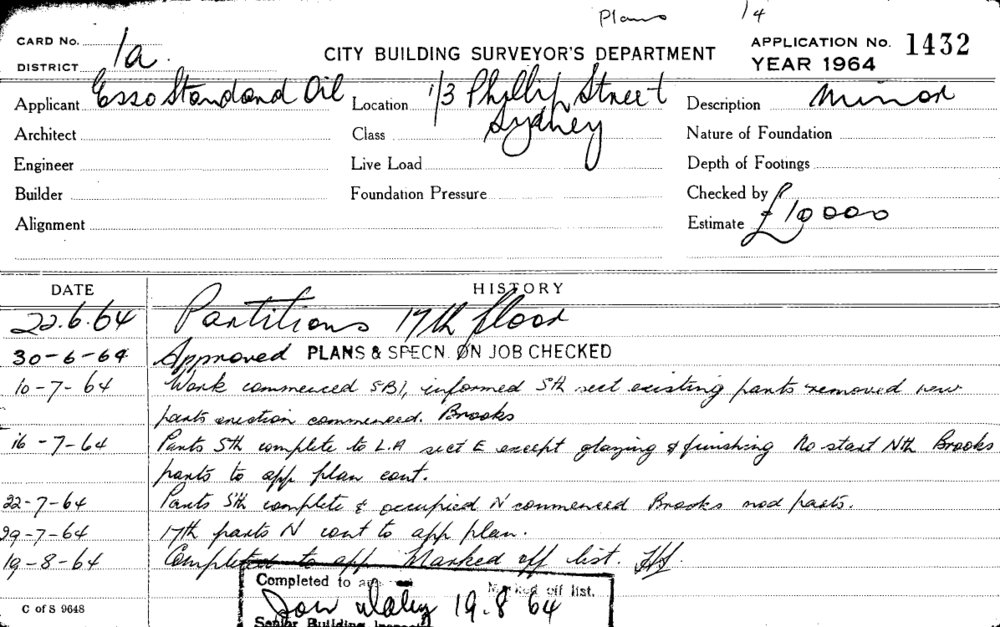 Plans 1/4
CARD No. CITY BUILDING SURVEYOR'S DEPARTMENT APPLICATION No. 1432
DISTRICT 1a. YEAR 1964
Applicant Esso Standard Oil Location 1/3 Phillip Street Description Minor
Architect Class Sydney Nature of Foundation
Engineer Live Load Depth of Footings
Builder Foundation Pressure Checked by
Alignment Estimate £10000
DATE HISTORY
22.6.64 Partitions 17th floor
30-6-64 Approved PLANS & SPECN. ON JOB CHECKED
10-7-64 Work commenced SBI, informed Sth sect existing parts removed new
parts erection commenced. Brooks
16-7-64 Parts Sth complete to L.A sect E except glazing & finishing No start Nth Brooks
parts to app plan cont.
22-7-64 Parts Sth complete & occupied N commenced Brooks mod parts.
29-7-64 17th parts N cont to app plan.
19-8-64 Completed to app Marked off list.
Completed to app Marked off list.
19.8.64
Senior Building Inspector
C of S 9648